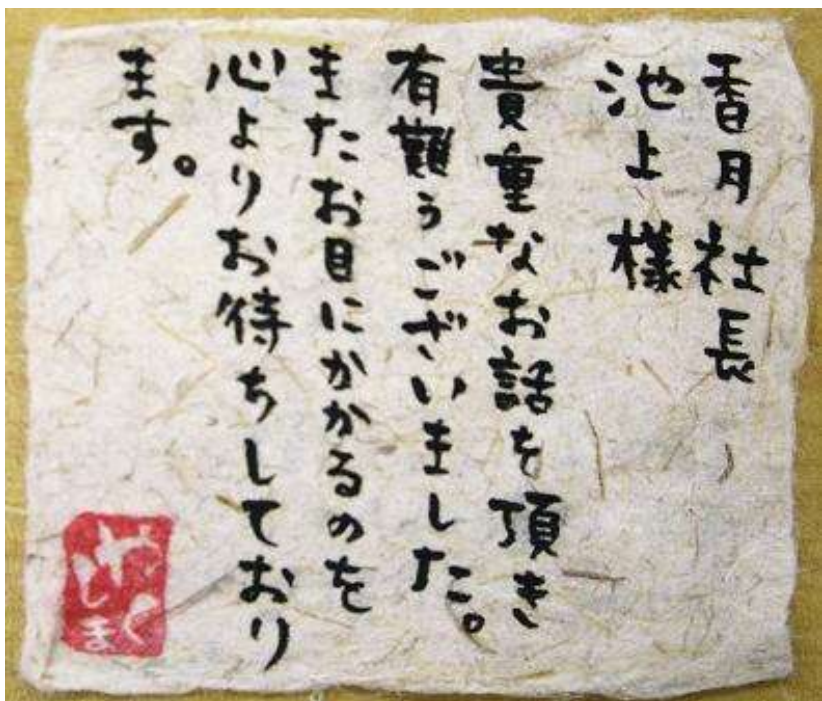 香月社長
池上様
貴重なお話を頂き
有難うございました。
またお目にかかるのを
心よりお待ちしており
ます。
やくしま